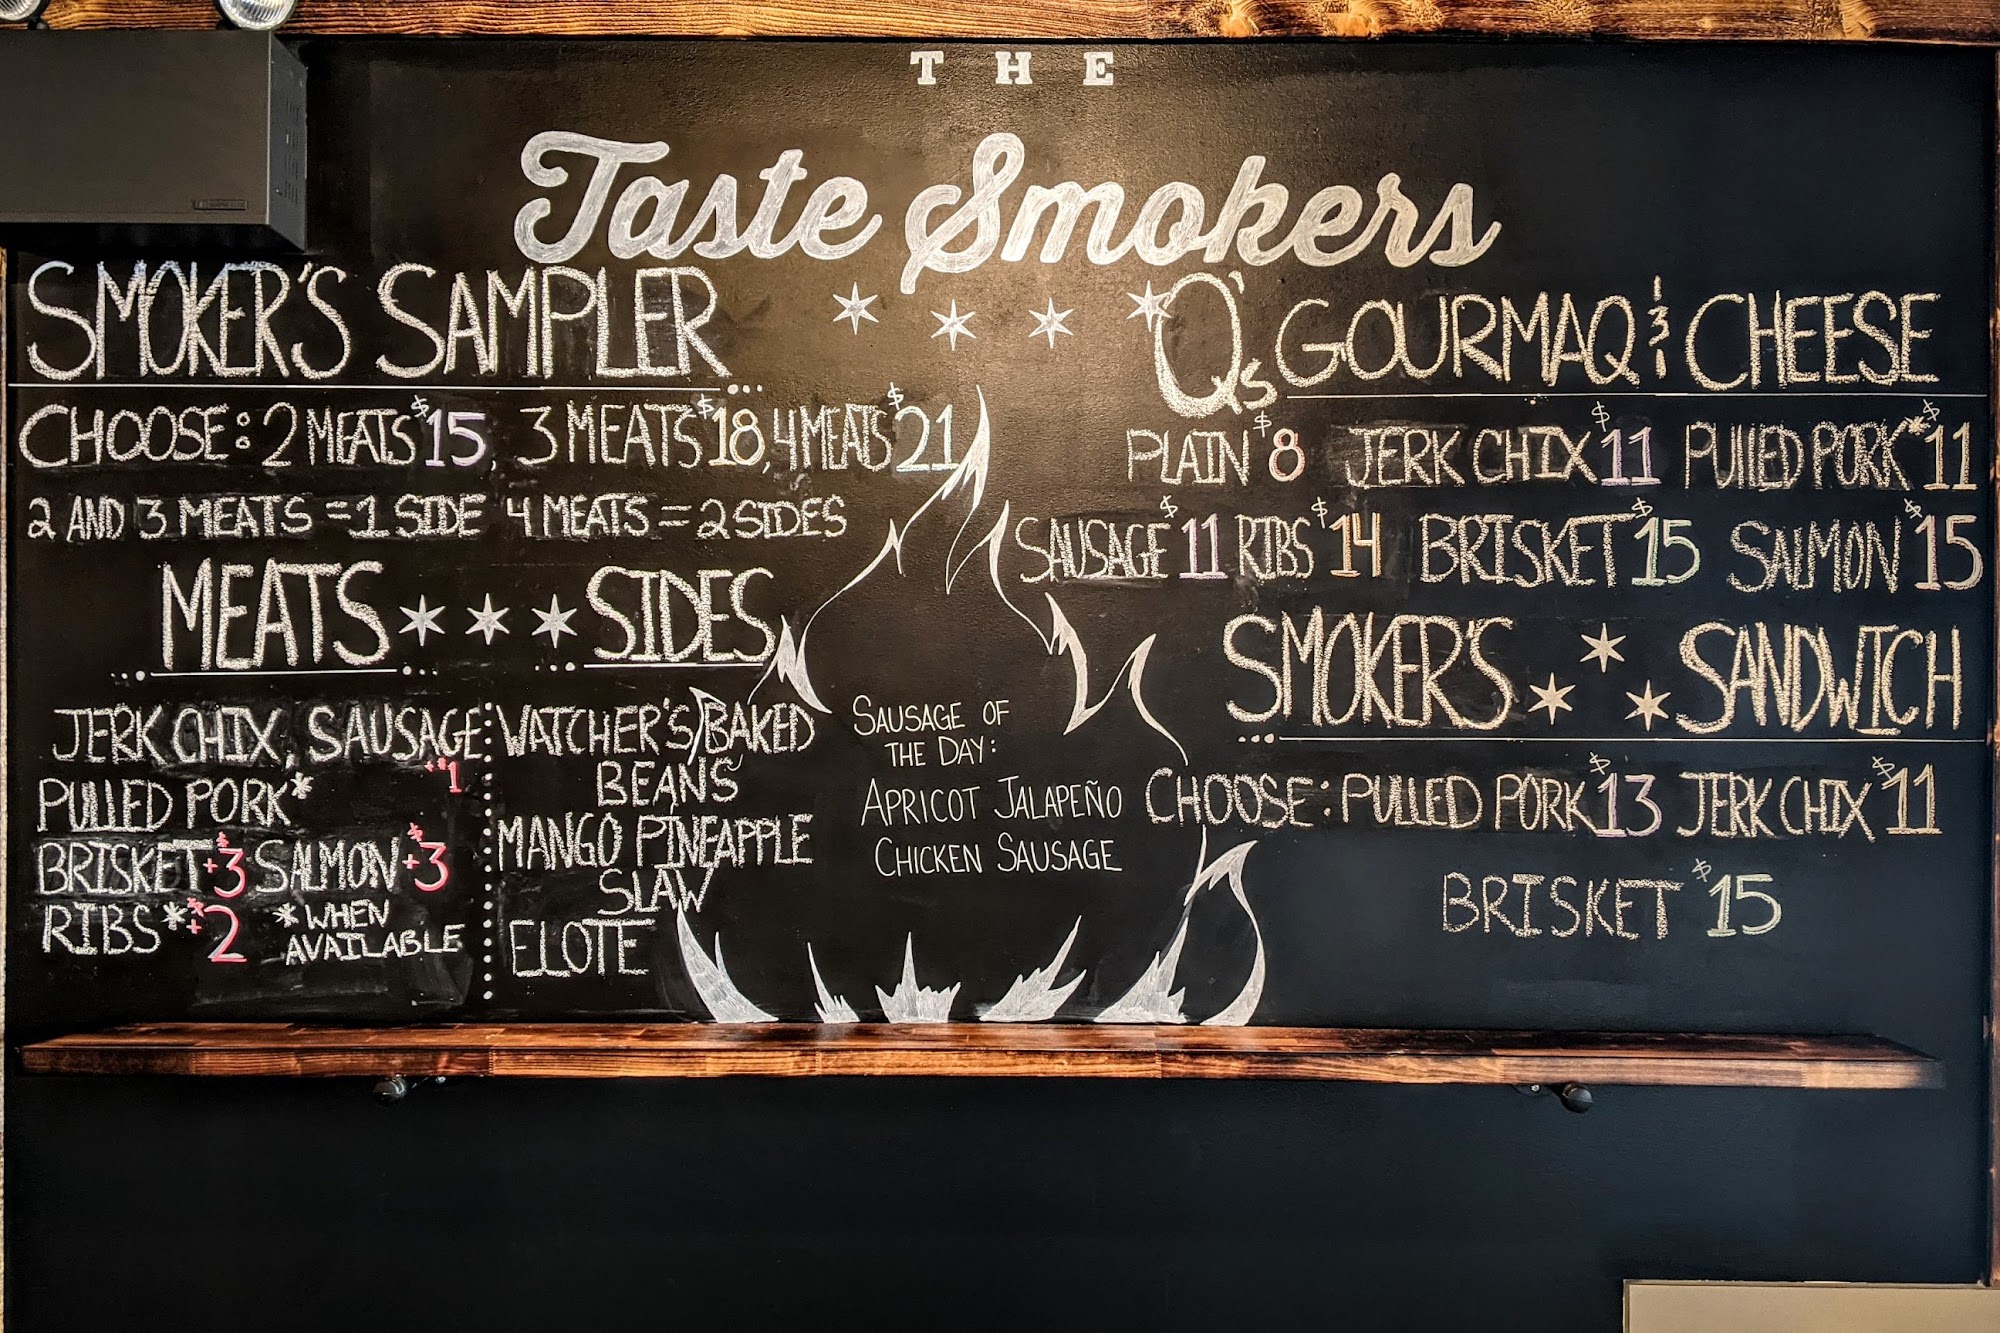 THE
Taste Smokers
SMOKER'S SAMPLER
CHOOSE: 2 MEATS $15, 3 MEATS $18, 4 MEATS $21
2 AND 3 MEATS = 1 SIDE 4 MEATS = 2 SIDES
MEATS
JERK CHIX, SAUSAGE +$1
PULLED PORK*
BRISKET +$3 SALMON +$3
RIBS* +$2 *WHEN
AVAILABLE
SIDES
WATCHER'S BAKED
BEANS
MANGO PINEAPPLE
SLAW
ELOTE
SAUSAGE OF
THE DAY:
APRICOT JALAPEÑO
CHICKEN SAUSAGE
Q'S GOURMAQ & CHEESE
PLAIN $8 JERK CHIX $11 PULLED PORK* $11
SAUSAGE $11 RIBS $14 BRISKET $15 SALMON $15
SMOKER'S SANDWICH
CHOOSE: PULLED PORK $13 JERK CHIX $11
BRISKET $15